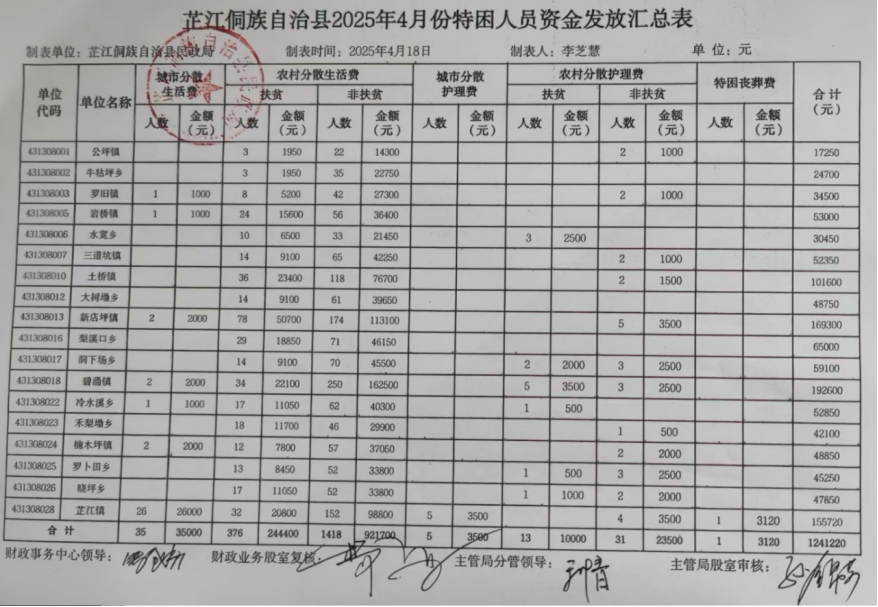 芷江侗族自治县2025年4月份特困人员资金发放汇总表
制表单位：芷江侗族自治县民政局 制表时间：2025年4月18日 制表人：李芝慧 单 位：元
单位代码 单位名称 城市分散生活费 农村分散生活费 城市分散护理费 农村分散护理费 特困丧葬费 合计（元）
扶贫 非扶贫 扶贫 非扶贫
人数 金额（元） 人数 金额（元） 人数 金额（元） 人数 金额（元） 人数 金额（元） 人数 金额（元） 人数 金额（元）
431308001 公坪镇 3 1950 22 14300 2 1000 17250
431308002 牛牯坪乡 3 1950 35 22750 24700
431308003 罗旧镇 1 1000 8 5200 42 27300 2 1000 34500
431308005 岩桥镇 1 1000 24 15600 56 36400 53000
431308006 水宽乡 10 6500 33 21450 3 2500 30450
431308007 三道坑镇 14 9100 65 42250 2 1000 52350
431308010 土桥镇 36 23400 118 76700 2 1500 101600
431308012 大树坳乡 14 9100 61 39650 48750
431308013 新店坪镇 2 2000 78 50700 174 113100 5 3500 169300
431308016 梨溪口乡 29 18850 71 46150 65000
431308017 洞下场乡 14 9100 70 45500 2 2000 3 2500 59100
431308018 碧涌镇 2 2000 34 22100 250 162500 5 3500 3 2500 192600
431308022 冷水溪乡 1 1000 17 11050 62 40300 1 500 52850
431308023 禾梨坳乡 18 11700 46 29900 1 500 42100
431308024 楠木坪镇 2 2000 12 7800 57 37050 2 2000 48850
431308025 罗卜田乡 13 8450 52 33800 1 500 3 2500 45250
431308026 晓坪乡 17 11050 52 33800 1 1000 2 2000 47850
431308028 芷江镇 26 26000 32 20800 152 98800 5 3500 4 3500 1 3120 155720
合 计 35 35000 376 244400 1418 921700 5 3500 13 10000 31 23500 1 3120 1241220
财政事务中心领导： 财政业务股室复核： 主管局分管领导： 主管局股室审核：